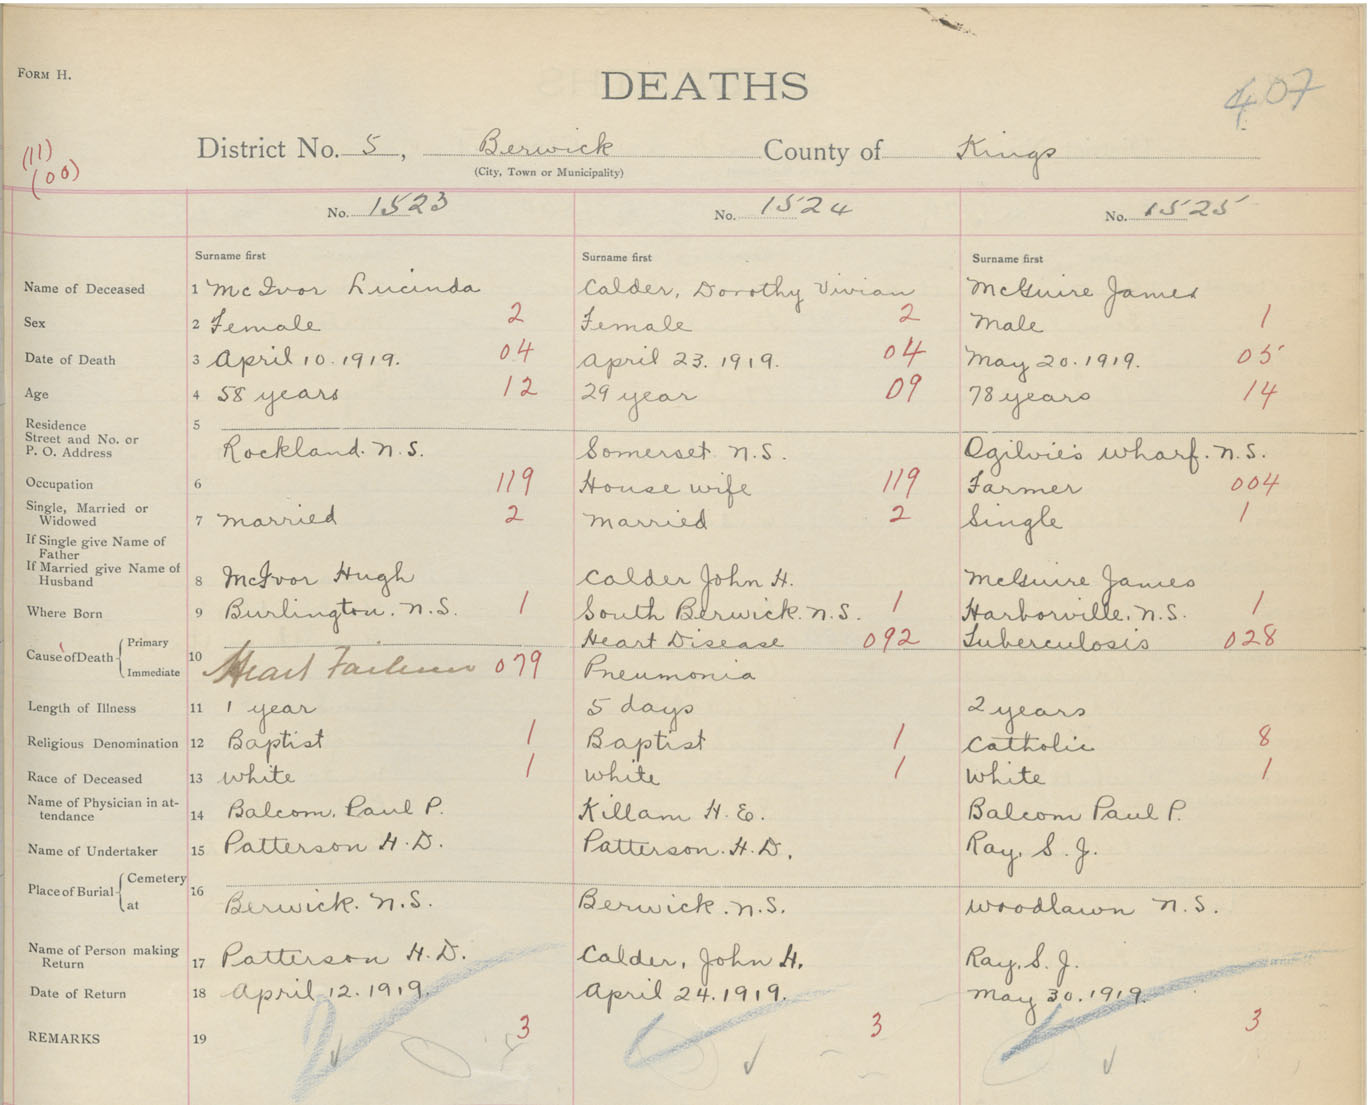 FORM H.
DEATHS
407
(11)
(00)
District No. 5, Berwick County of Kings
(City, Town or Municipality)
No. 1523 No. 1524 No. 1525
Surname first Surname first Surname first
Name of Deceased 1 McIvor Lucinda Calder, Dorothy Vivian McGuire James
Sex 2 Female 2 Female 2 Male 1
Date of Death 3 April 10. 1919. 04 April 23. 1919. 04 May 20. 1919. 05
Age 4 58 years 12 29 year 09 78 years 14
Residence 5
Street and No. or
P. O. Address Rockland. N.S. Somerset N.S. Ogilvie's Wharf. N.S.
Occupation 6 119 House wife 119 Farmer 004
Single, Married or
Widowed 7 Married 2 Married 2 Single 1
If Single give Name of
Father
If Married give Name of
Husband 8 McIvor Hugh Calder John H. McGuire James
Where Born 9 Burlington. N.S. 1 South Berwick. N.S. 1 Harborville. N.S. 1
Cause of Death Primary Heart Disease 092 Tuberculosis 028
10 Immediate Heart Failure 079 Pneumonia
Length of Illness 11 1 year 5 days 2 years
Religious Denomination 12 Baptist 1 Baptist 1 Catholic 8
Race of Deceased 13 White 1 White 1 White 1
Name of Physician in at-
tendance 14 Balcom, Paul P. Killam H. E. Balcom Paul P.
Name of Undertaker 15 Patterson H. D. Patterson. H. D. Ray, S. J.
Place of Burial Cemetery 16
at Berwick. N.S. Berwick. N.S. Woodlawn N.S.
Name of Person making
Return 17 Patterson H. D. Calder, John H. Ray, S. J.
Date of Return 18 April 12. 1919. April 24. 1919. May 30. 1919
REMARKS 19 3 3 3